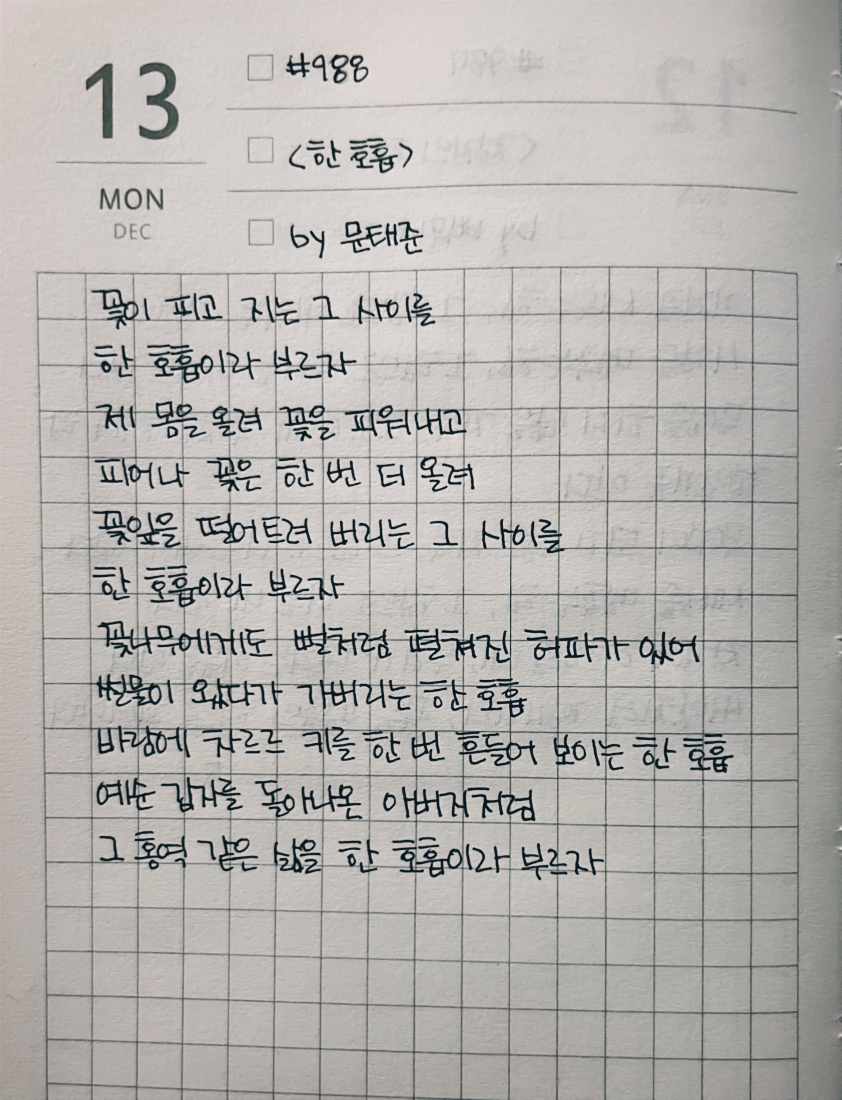 13
MON
DEC
#988
<한 호흡>
by 문태준
꽃이 피고 지는 그 사이를
한 호흡이라 부르자
제 몸을 울려 꽃을 피워내고
피어나 꽃은 한 번 더 울려
꽃잎을 떨어트려 버리는 그 사이를
한 호흡이라 부르자
꽃나무에게도 뻘처럼 펼쳐진 허파가 있어
썰물이 왔다가 가버리는 한 호흡
바람에 차르르 키를 한 번 흔들어 보이는 한 호흡
예순 갑자를 돌아나온 아버지처럼
그 홍역 같은 삶을 한 호흡이라 부르자